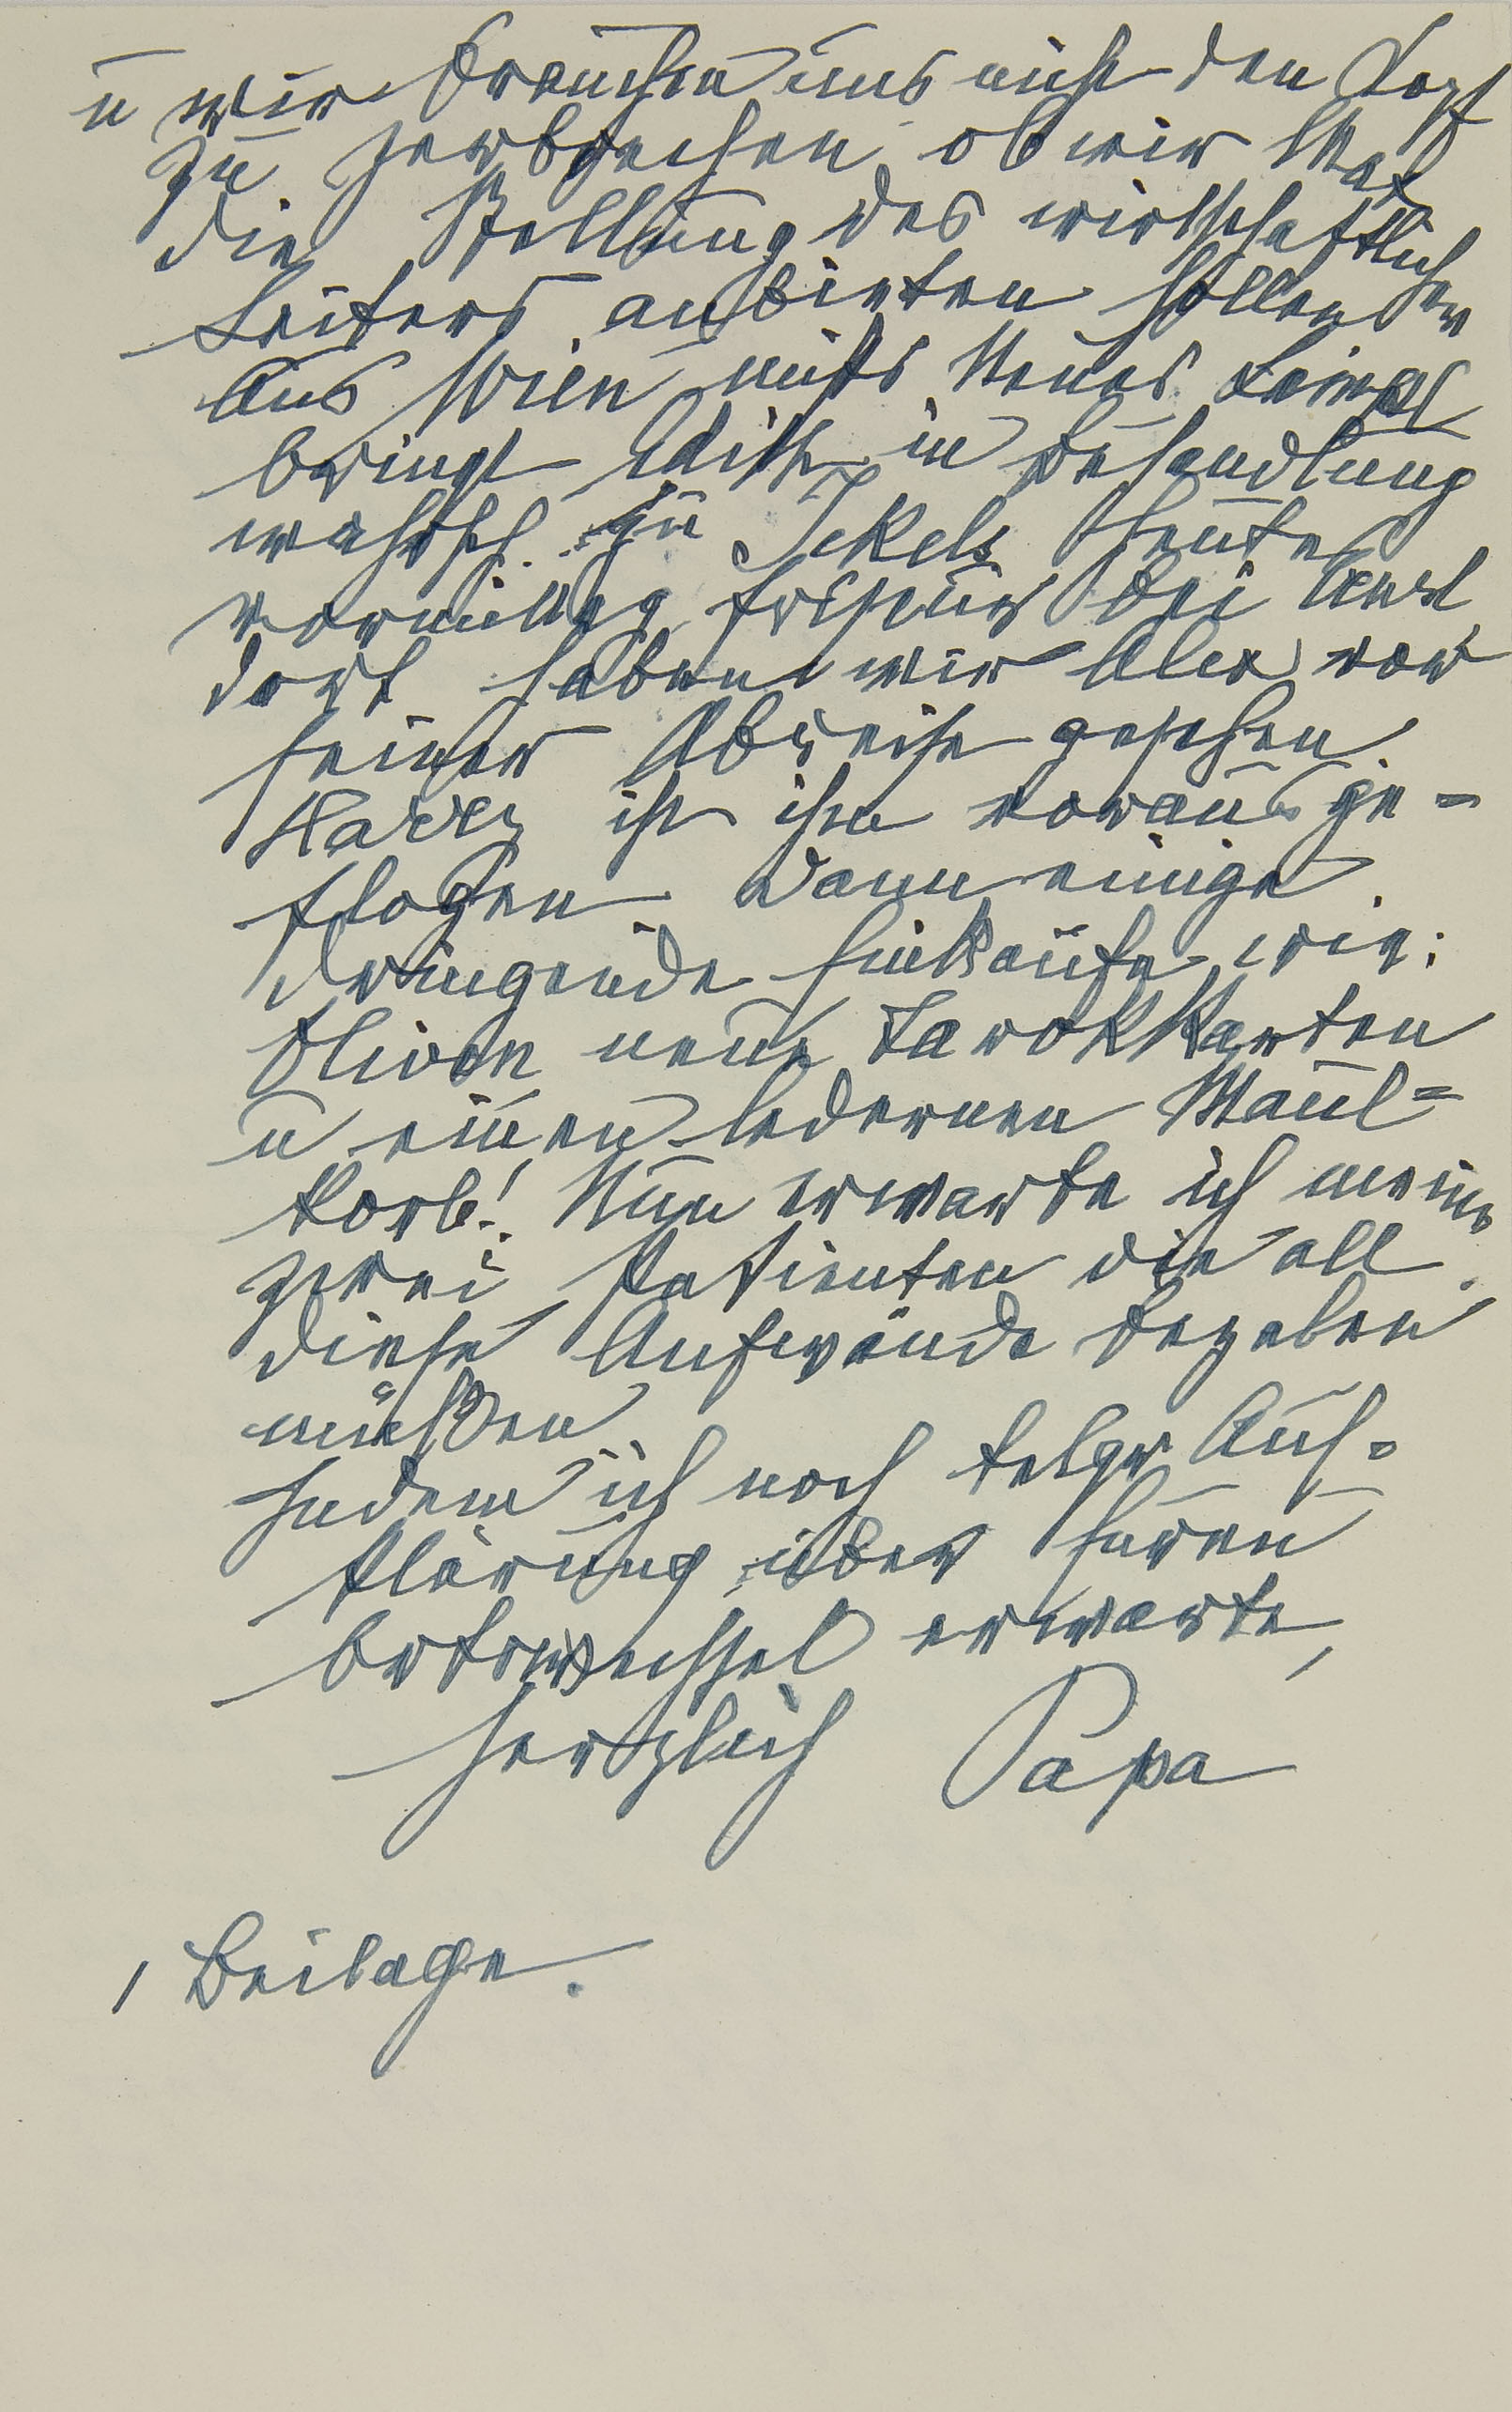 u wir brauchen uns nicht den Kopf
zu zerbrechen, ob wir Max
die Stellung des wirtschaftlichen
Leiters anbieten sollen.
Aus Wien nichts Neues
bringt Edith in Behandlung
wahrsch. zu Jekels Heute
vormittag Friseur bei
dort haben wir Alex vor
seiner Abreise gesehen.
Harry ist ihm vorausge=
flogen. Dann einige
dringende Einkäufe wie:
Oliven neue Tarokkarten
u einen ledernen Maul=
korb! Nun erwarte ich meine
zwei Patienten die all
diese Aufwände bezalen
müßen.
Indem ich noch Auf=
klärung über Euren
Ortswechsel erwarte,
herzlich Papa
1 Beilage.